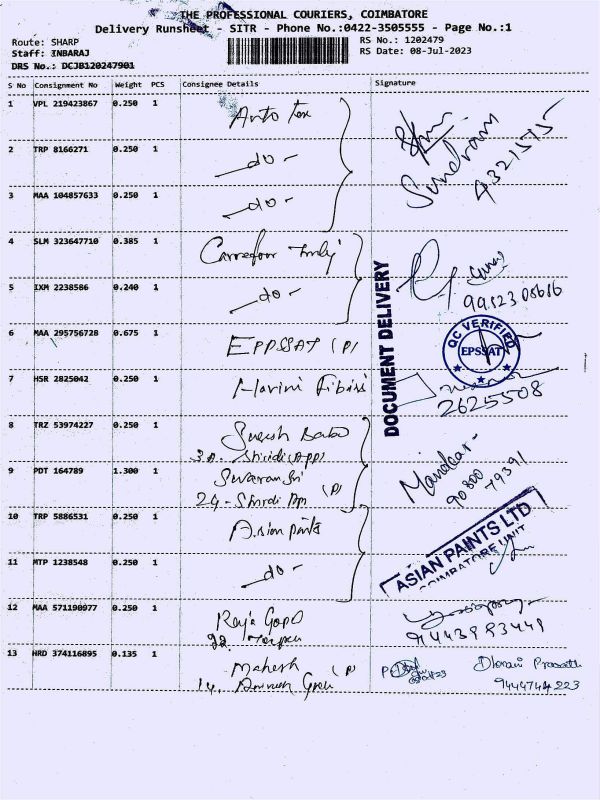 THE PROFESSIONAL COURIERS, COIMBATORE
Delivery Runsheet - SITR - Phone No.:0422-3505555 - Page No.:1
Route: SHARP
Staff: INBARAJ
DRS No.: DCJB120247901
RS No.: 1202479
RS Date: 08-Jul-2023
S No Consignment No Weight PCS Consignee Details Signature
1 VPL 219423867 0.250 1 Auto Tex
2 TRP 8166271 0.250 1 - do -
Sundram
4321575
3 MAA 104857633 0.250 1 - do -
4 SLM 323647710 0.385 1 Carrefour
5 IXM 2238586 0.240 1 - do -
DOCUMENT DELIVERY
6 MAA 295756728 0.675 1 EPPSSAT (P)
QC VERIFIED
EPSSAT
7 HSR 2825042 0.250 1 Harini Fibres
2625508
8 TRZ 53974227 0.250 1 Suresh Babu
30. Shiridi (App)
9 PDT 164789 1.300 1 Swaran Sri
24 - Shirdi App (P)
90800 79391
10 TRP 5886531 0.250 1 Asian paints
ASIAN PAINTS LTD
COIMBATORE UNIT
11 MTP 1238548 0.250 1 - do -
12 MAA 571190977 0.250 1 Raja Gopal
13 HRD 374116895 0.135 1 Mahesh (P)
14,
9444744223